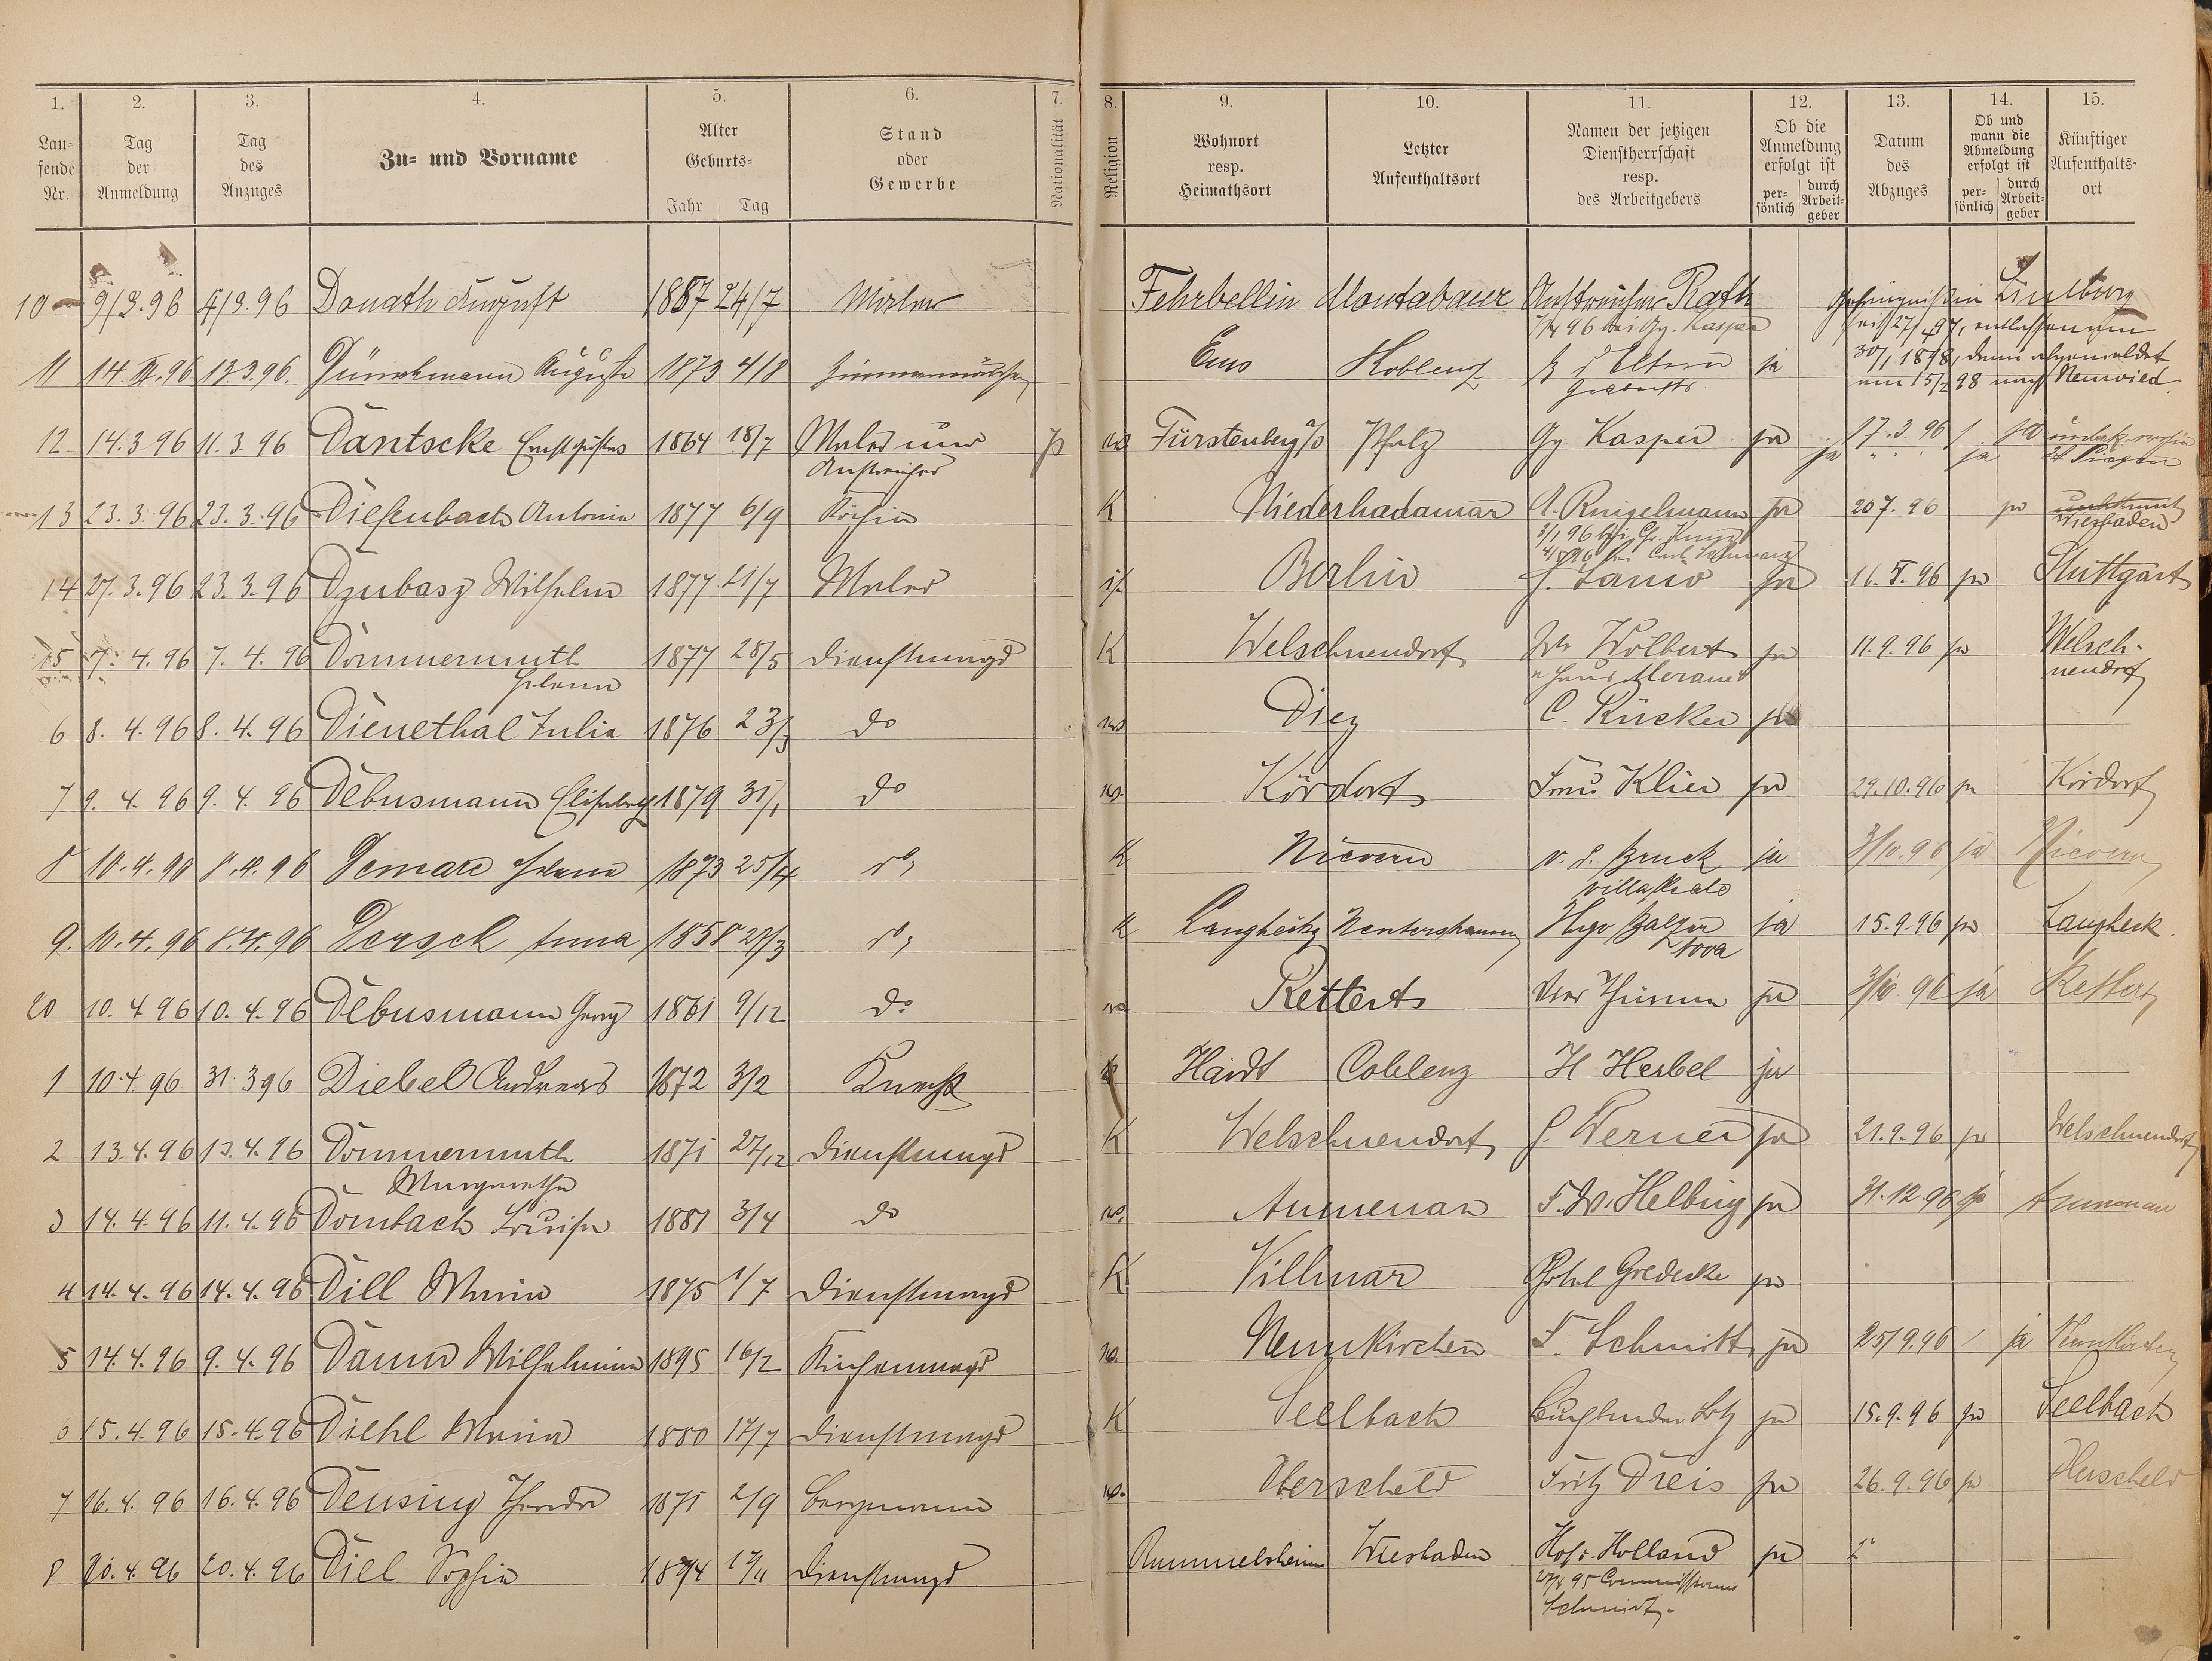 1. 2. 3. 4. 5. 6. 7. 8. 9. 10. 11. 12. 13. 14. 15.
Lau-
fende
Nr.
Tag
der
Anmeldung
Tag
des
Anzuges
Zu- und Vorname
Alter
Geburts-
Jahr Tag
Stand
oder
Gewerbe
Nationalität
Religion
Wohnort
resp.
Heimathsort
Letzter
Aufenthaltsort
Namen der jetzigen
Dienstherrschaft
resp.
des Arbeitgebers
Ob die
Anmeldung
erfolgt ist
per-
sönlich
durch
Arbeit-
geber
Datum
des
Abzuges
Ob und
wann die
Abmeldung
erfolgt ist
per-
sönlich
durch
Arbeit-
geber
Künftiger
Aufenthalts-
ort
10 9/3.96 4/3.96 Donath August 1857 24/7 Maler Fehrbellin Montabaur Anstreicher Rath Gefängniß in Limburg
96 bei Gg. Kasper seit 27/4 97, entlassen am
11 14.III.96 13.3.96. Dünckmann Auguste 1873 4/8 Zimmermädchen Ems Koblenz d Eltern ja 30/1 1898, dann abgemeldet
am 15/2 98 nach Neuwied
12 14.3 96 11.3.96 Däntscke Ernst Gustav 1864 18/7 Maler und p ev. Fürstenberg a/o Pfalz Gg Kasper ja 17.3.96 ja
Anstreicher ja ja
13 23.3.96 23.3.96 Diefenbach Antonie 1877 6/9 Köchin K Niederhadamar A. Ringelmann ja 20 7. 96 ja unbekannt
Wiesbaden
14 27.3.96 23.3.96 Dzubasz Wilhelm 1877 21/7 Maler Berlin J. Lanio ja 16.V.96 ja Stuttgart
15 7. 4. 96 7. 4. 96 Dommermuth 1877 28/5 Dienstmagd K Welschneudorf Ww Wolbert ja 11.9.96 ja Welsch-
Helena Haus Meraner neudorf
6 8. 4. 96 8. 4. 96 Dienethal Julie 1876 23/3 do ev. Diez C. Rücker ja
7 9. 4. 96 9. 4. 96 Debusmann Elisabeth 1879 31/1 do ev. Kördorf Frau Klier ja 29.10.96 ja Kördorf
8 10.4.96 8.4.96 Demare Helene 1873 25/4 do K Nievern v. d. Bruck ja 3/10.96 ja Nievern
9. 10.4.96 8.4.96 Dersch Anna 1858 27/3 do K Langhecke Nentershausen Hugo Balzer ja 15.9.96 ja Langheck.
20 10. 4 96 10. 4. 96 Debusmann Georg 1861 9/12 do ev. Rettert Thümm ja 3/10 96 ja Rettert
1 10.4.96 31.3 96 Diebel Andreas 1872 3/2 Knecht K Haidt Coblenz H Herbel ja
2 13.4.96 13.4.96 Dommermuth 1871 27/12 Dienstmagd K Welschneudorf J. Werner ja 21.9.96 ja Welschneudorf
Margaretha
3 14.4.96 11.4.96 Dombach Louise 1881 3/4 do ev. Aumenau F. W. Helbig ja 31.12.96 ja Aumenau
4 14.4.96 14.4.96 Dill Maria 1875 1/7 Dienstmagd K Villmar Hotel Goedecke ja
5 14.4.96 9. 4. 96 Damm Wilhelmine 1895 16/2 Küchenmagd ev. Neunkirchen F. Schmitt ja 25/9.96 ja Neunkirchen
6 15.4.96 15.4.96 Diehl Maria 1880 17/7 Dienstmagd K Seelbach ja 15.9.96 ja Seelbach
7 16.4.96 16.4.96 Densing Theodor 1871 2/9 Bergmann ev. Oberscheld Fritz Dreis ja 26.9.96 ja
8 20.4.96 20.4.96 Diel Sophie 1874 17/11 Dienstmagd Rummelsheim Wiesbaden Hof v. Holland ja
Schmidt.